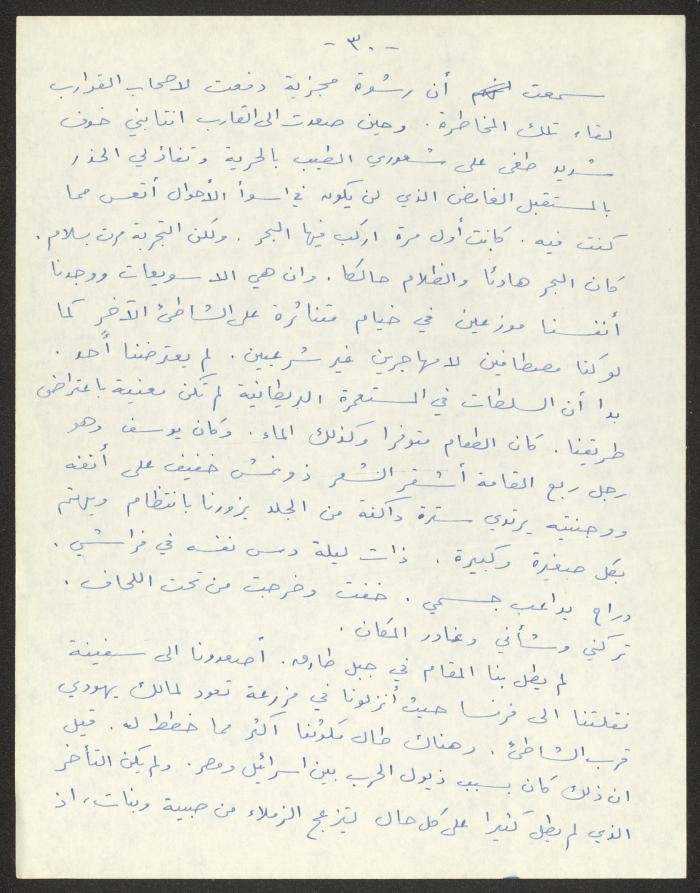 - ٣٠ -
سمعت أن رشوة مجزية دفعت لاصحاب القوارب
لقاء تلك المخاطرة. وحين صعدت الى القارب انتابني خوف
شديد طغى على شعوري الطيب بالحرية وتفاؤلي الحذر
بالمستقبل الغامض الذي لن يكون في اسوأ الأحوال أتعس مما
كنت فيه. كانت أول مرة اركب فيها البحر. ولكن التجربة مرت بسلام.
كان البحر هادئا والظلام حالكا. وان هي الا سويعات ووجدنا
أنفسنا موزعين في خيام متناثرة على الشاطئ الآخر كما
لو كنا مصطافين لا مهاجرين غير شرعيين. لم يعترضنا أحد.
بدا أن السلطات في المستعمرة البريطانية لم تكن معنية باعتراض
طريقنا. كان الطعام متوفرا وكذلك الماء. وكان يوسف وهو
رجل ربع القامة أشقر الشعر ذو نمش خفيف على أنفه
ووجنتيه يرتدي سترة داكنة من الجلد يزورنا بانتظام ويهتم
بكل صغيرة وكبيرة. ذات ليلة دس نفسه في فراشي.
وراح يداعب جسمي. خفت وخرجت من تحت اللحاف.
تركني وشأني وغادر المكان.
لم يطل بنا المقام في جبل طارق. أصعدونا الى سفينة
نقلتنا الى فرنسا حيث أنزلونا في مزرعة تعود لمالك يهودي
قرب الشاطئ. وهناك طال مكوثنا أكثر مما خطط له. قيل
ان ذلك كان بسبب ذيول الحرب بين اسرائيل ومصر. ولم يكن التأخر
الذي لم يطل كثيرا على كل حال ليزعج الزملاء من صبية وبنات، اذ